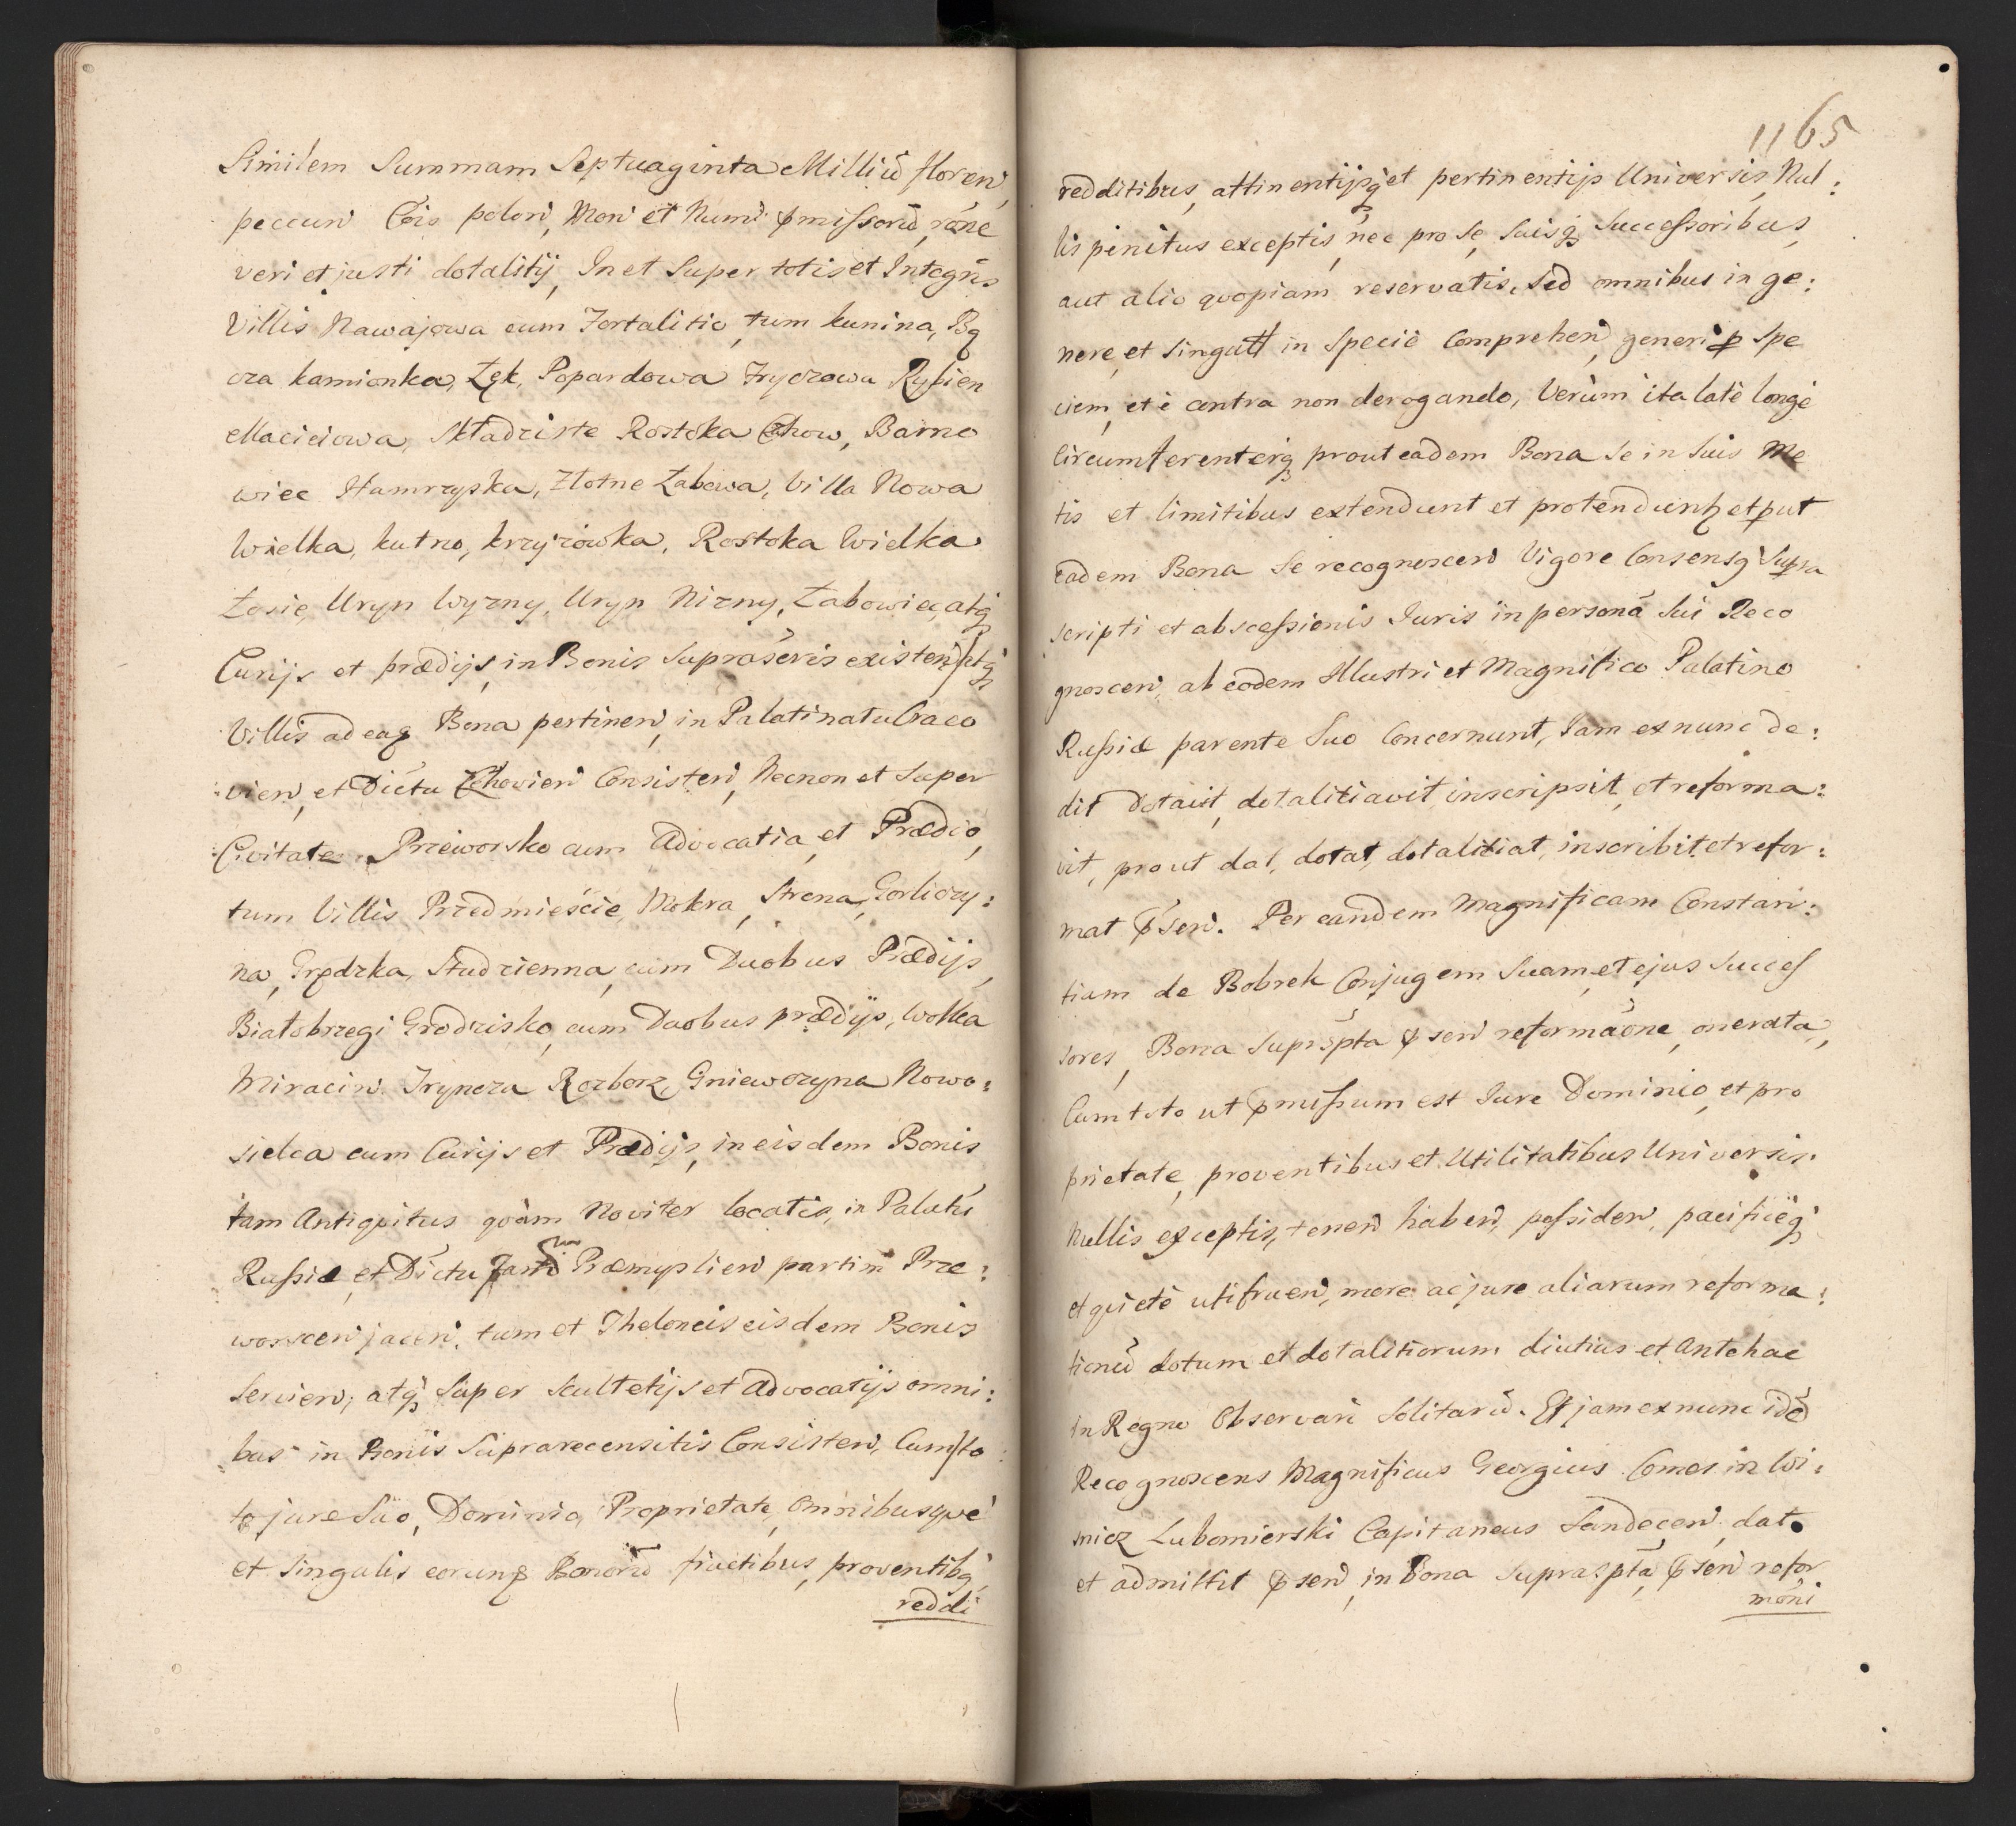 Similem Summam Septuaginta Milliū floren
peccun Cōis polon, Mon et Numi pmissorū, rāne
veri et justi dotalitij, In et Super totis et Integris
Villis Nawajowa cum Fortalitio, tum kunina, Bg
cza kamionka, Łęk, Popardowa Fryczowa Rybien
Maciciowa, Składziste Rostoka Czhow, Barno
wiec Hamrzyska, Złotne Łabowa, Villa Nowa
Wielka, kutno, krzyzowka, Rostoka Wielka
Łosie Uryn Wyzny, Uryn Nizny, Łabowiec, atq
Curijs et prædijs, in Bonis supraseris existen, atq
Villis ad eaq Bona pertinen, in Palatinatu Craco
vien, et Dictu Czhovien Consisten, Necnon et Super
Civitate Przeworsko cum Advocatia, et Prædio,
tum Villis Przedmieście, Mokra, Strona, Gorliczy:
na, Grzędzka, Studzienna, cum Duobus Prædijs,
Białobrzegi Grodzisko, cum Duobus prædijs, Wolka
Miracin Tryncza Rozborz, Gniewczyna Nowo:
sielca cum Curijs et Prædijs, in eisdem Bonis
tam Antiquitus quàm Noviter locatis, in Palatū
Russiæ, et Dictu Præmyslien partim Prze:
worscen jacen, tum et Theloneis eisdem Bonis
Servien, atq Super Scultetijs et Advocatijs omni:
bus in Bonis Suprarecensitis Consisten, Cum to
to jure Suo, Dominio, Proprietate, Omnibusque
et Singulis eorunq Bonorū fructibus, proventibq,
reddi
1165
redditibus, attinentijsq et pertinentijs Universis, Nul:
lis penitus exceptis, nec pro Se, Suisq Successoribus,
aut alio quopiam reservatis. Sed omnibus in ge:
nere, et Singull in Specie Comprehen, generi p Spe
ciem, et è contra non derogando, Verùm ita latè longè
Circumferenterq prout eadem Bona Se in Suis Me
tis et limitibus extendunt et protendunt, et put
eadem Bona Se recognoscen Vigore Consensq Supra
scripti et abscessionis Juris in personā Sui Reco
gnoscen, ab eodem Illustri et Magnifico Palatino
Russiæ parente Suo Concernunt, Jam ex nunc de:
dit Dotavit, dotalitiavit inscripsit, et reforma:
vit, prout dat, dotat, dotalitiat, inscribit, et refor:
mat psen. Per eandem Magnificam Constan:
tiam de Bobrek Conjugem Suam, et ejus Succes
sores, Bona Suprapta psen reformāone, onerata,
Cum toto ut pmissum est Jure Dominio, et pro
prietate, proventibus et Utilitatibus Universis.
Nullis exceptis, tenen haben, possiden, pacificèq
et quietè utifruen, more ac jure aliarum reforma:
tionū dotum et dotalitiorum diutius et Antehac
in Regno Observari Solitarū. Et jam ex nunc idē
Recognoscens Magnificus Georgius Comes in Wi:
snicz Lubomierski Capitaneus Sandecen, dat
et admittit psen, in Bona Suprapta, psen refor
mōni